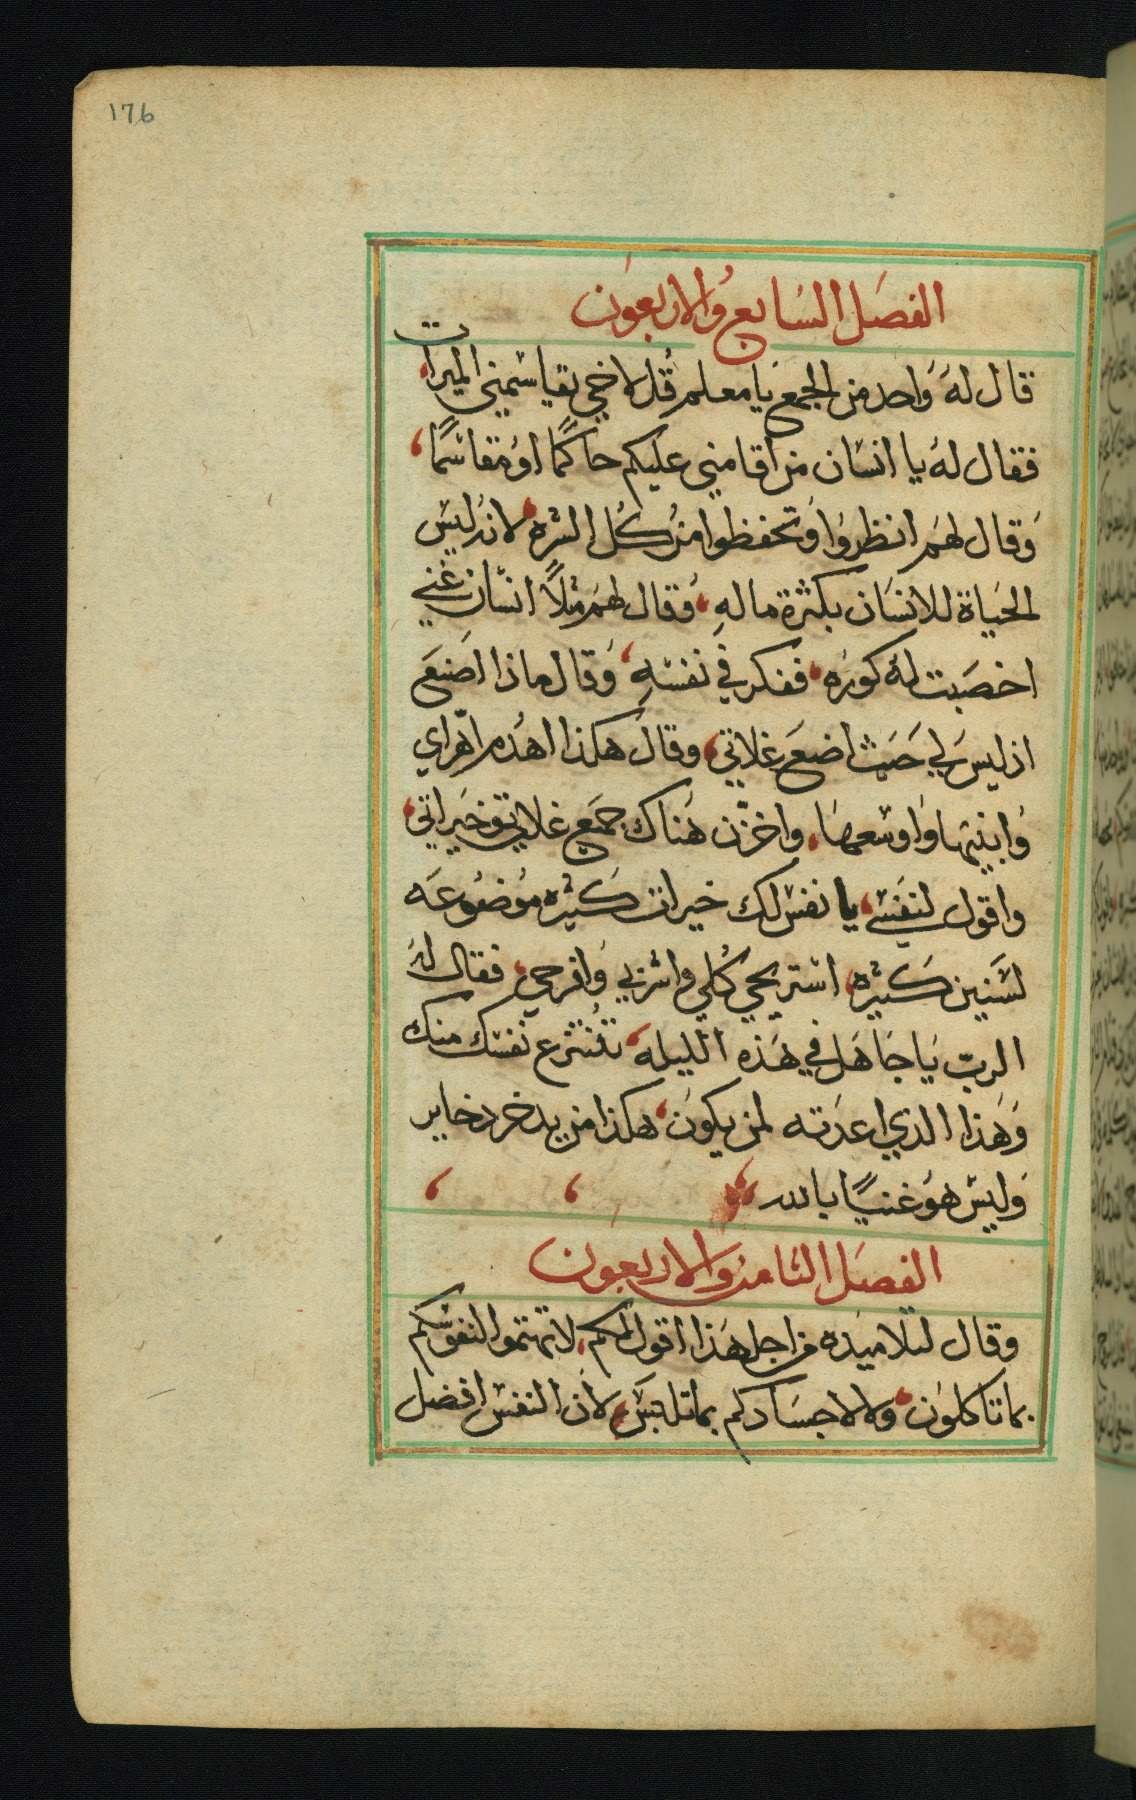 176
الفصل السابع والاربعون
قال له واحد من الجمع يا معلم قل لاخي يقاسمني الميرات
فقال له يا انسان من اقامني عليكم حاكمًا او مقاسمًا
وقال لهم انظروا وتحفظوا من كل الشره لانه ليس
الحياة للانسان بكثرة ماله وقال لهم مثلًا انسان غني
اخصبت له كوره ففكر في نفسه وقال ماذا اصنع
اذ ليس لي حيث اضع غلاتي وقال هكذا اهدم اهراي
وابنيها واوسعها واخزن هناك جميع غلاتي وخيراتي
واقول لنفسي يا نفس لك خيرات كثيره موضوعه
لسنين كثيره استريحي كلي واشربي وافرحي فقال له
الرب يا جاهل في هذه الليله تنتزع نفسك منك
وهذا الذي اعدته لمن يكون هكذا من يدخر دخاير
وليس هو غنيًا بالله
الفصل الثامن والاربعون
وقال لتلاميذه من اجل هذا اقول لكم لا تهتموا لنفوسكم
بما تاكلون ولا لاجسادكم بما تلبس لان النفس افضل